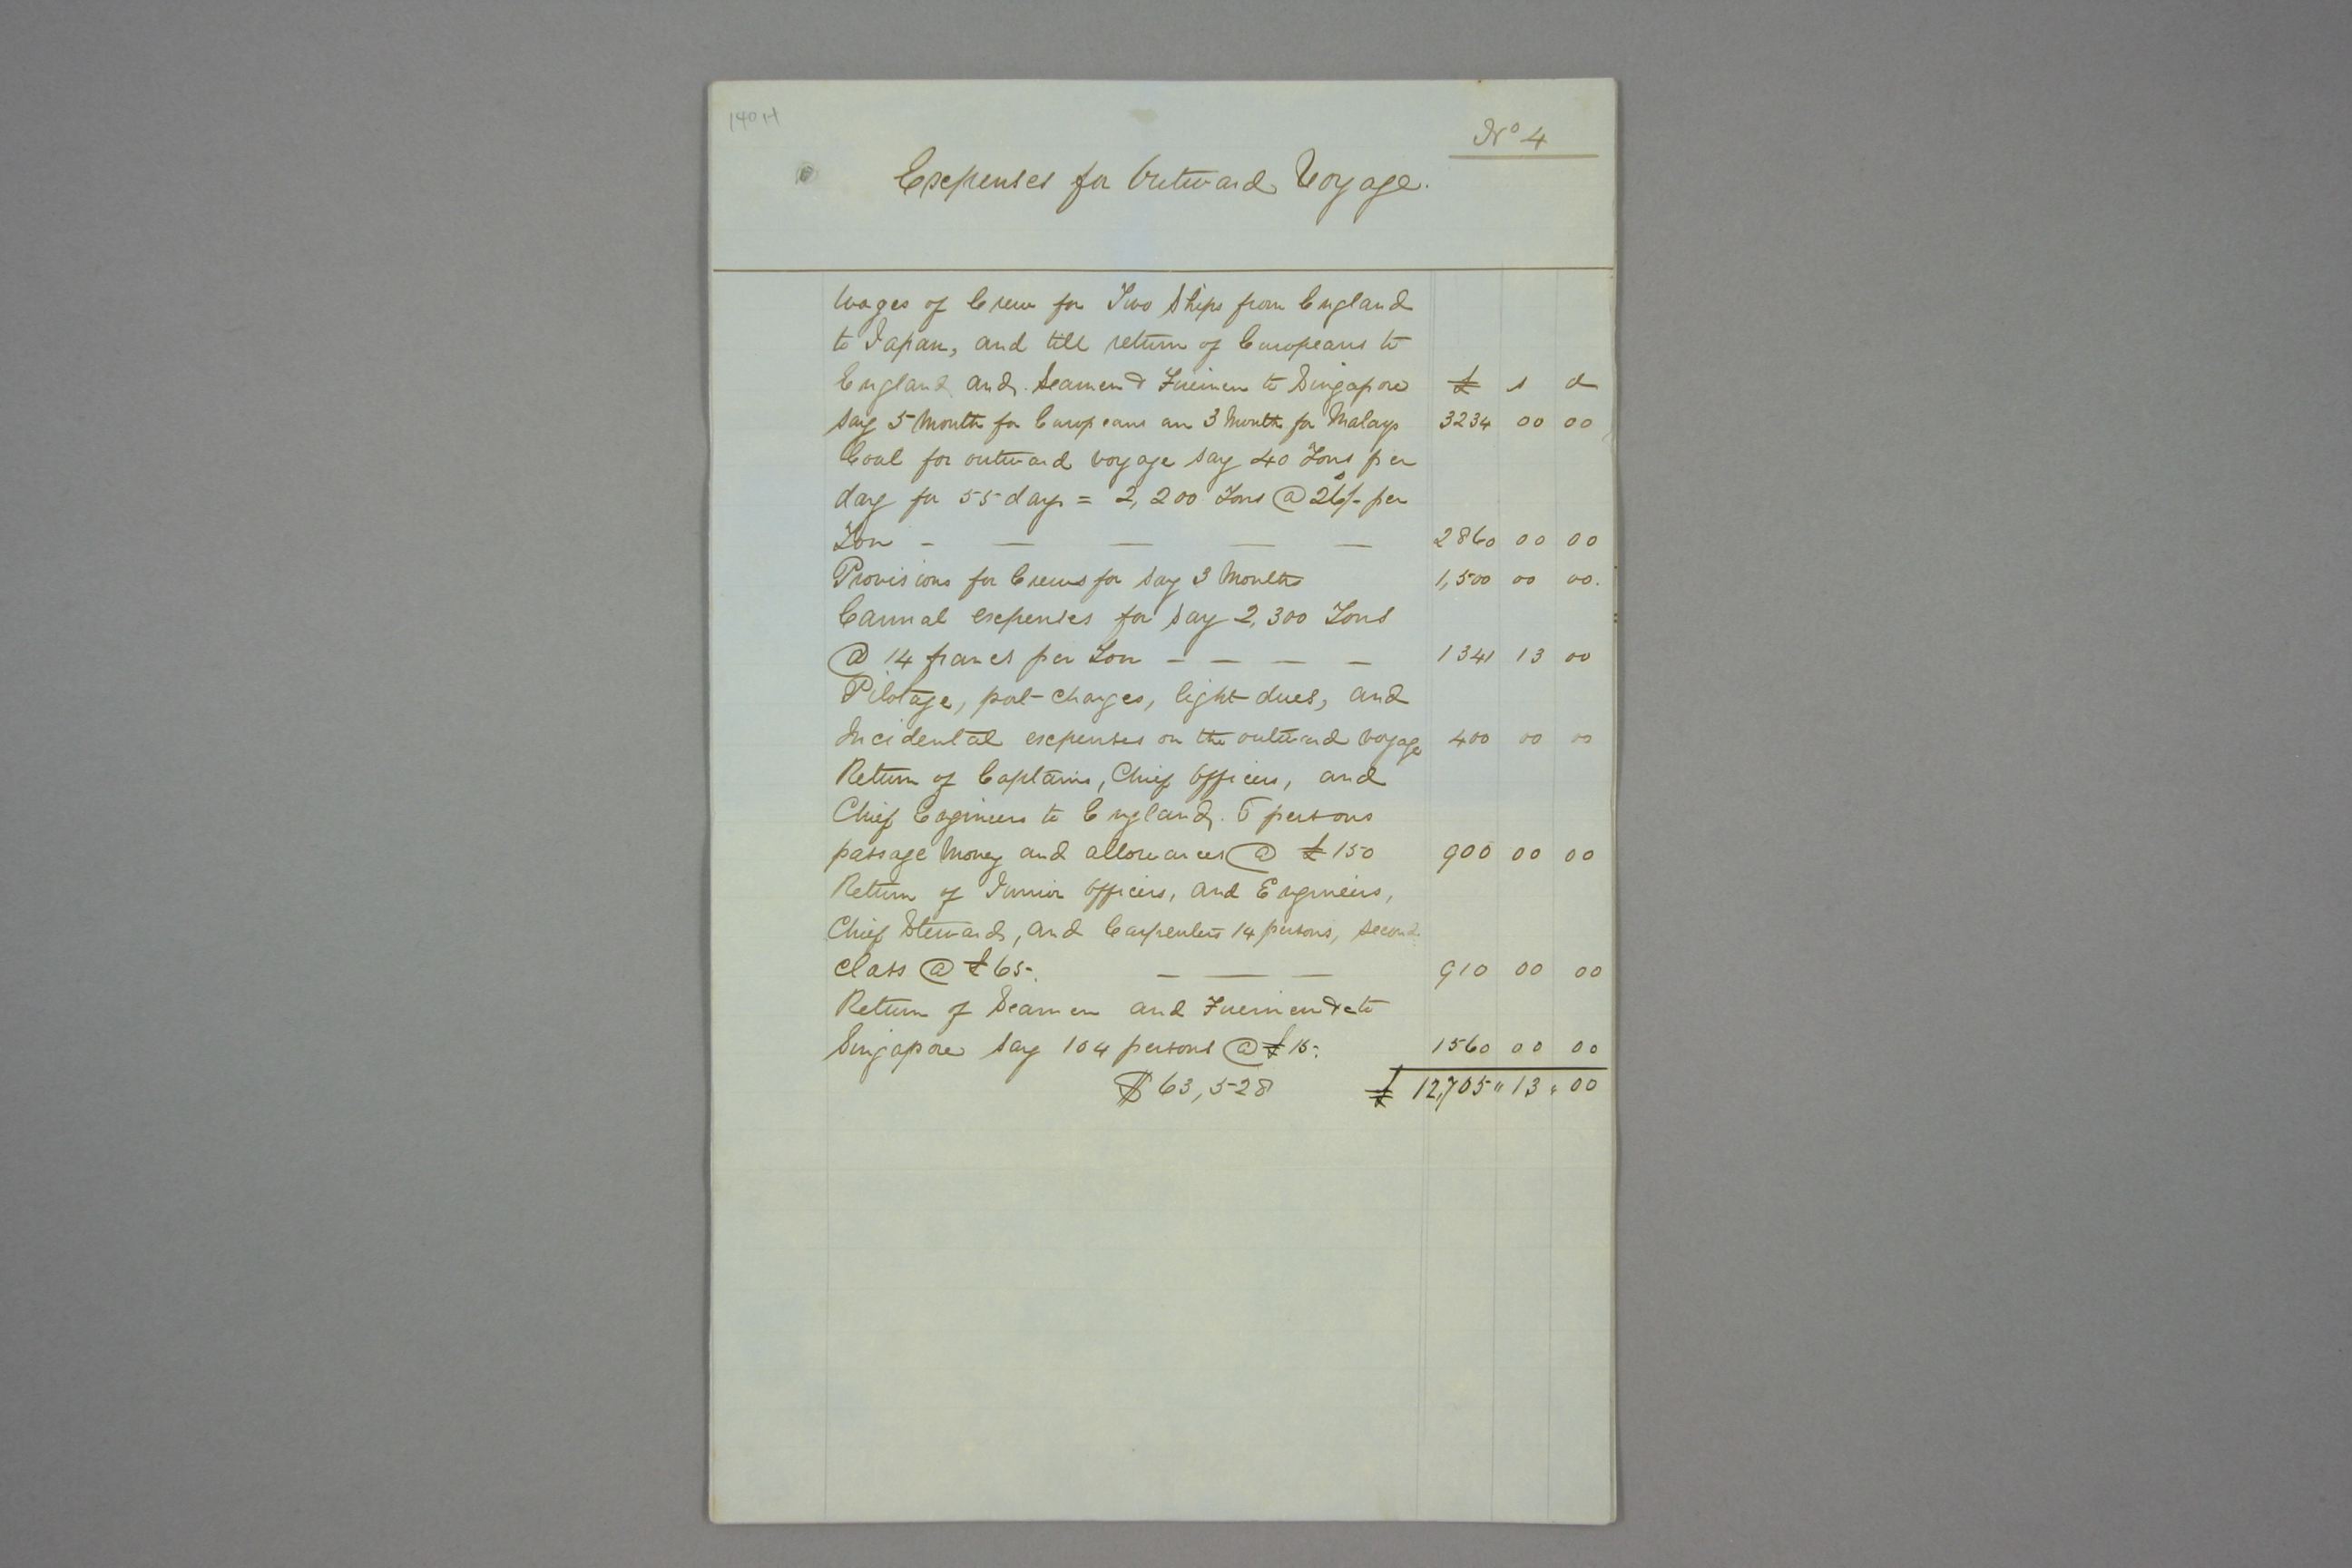 140H
Nº 4
Expenses for Outward Voyage.
Wages of Crew for Two Ships from England
to Japan, and till return of Europeans to
England and Seamen & Firemen to Singapore £ s d
say 5 Month for Europeans an 3 Month for Malays 3234 00 00
Coal for outward voyage say 40 Tons per
day for 55 days = 2,200 Tons @ 26/- per
Ton - — — — — 2860 00 00
Provisions for Crews for say 3 Months 1,500 00 00.
Cannal expenses for say 2,300 Tons
@ 14 francs per Ton - - - - 1341 13 00
Pilotage, port charges, light dues, and
Incidental expenses on the outward voyage 400 00 00
Return of Captains, Chief Officers, and
Chief Engineers to England. 6 persons
passage money and allowances @ £150 900 00 00
Return of Junior Officers, and Engineers,
Chief Stewards, and Carpenters 14 persons, second
class @ £65-. - — — 910 00 00
Return of Seamen and Firemen &c to
Singapore say 104 persons @ £15-. 1560 00 00
$63,528 £ 12,705 " 13 " 00